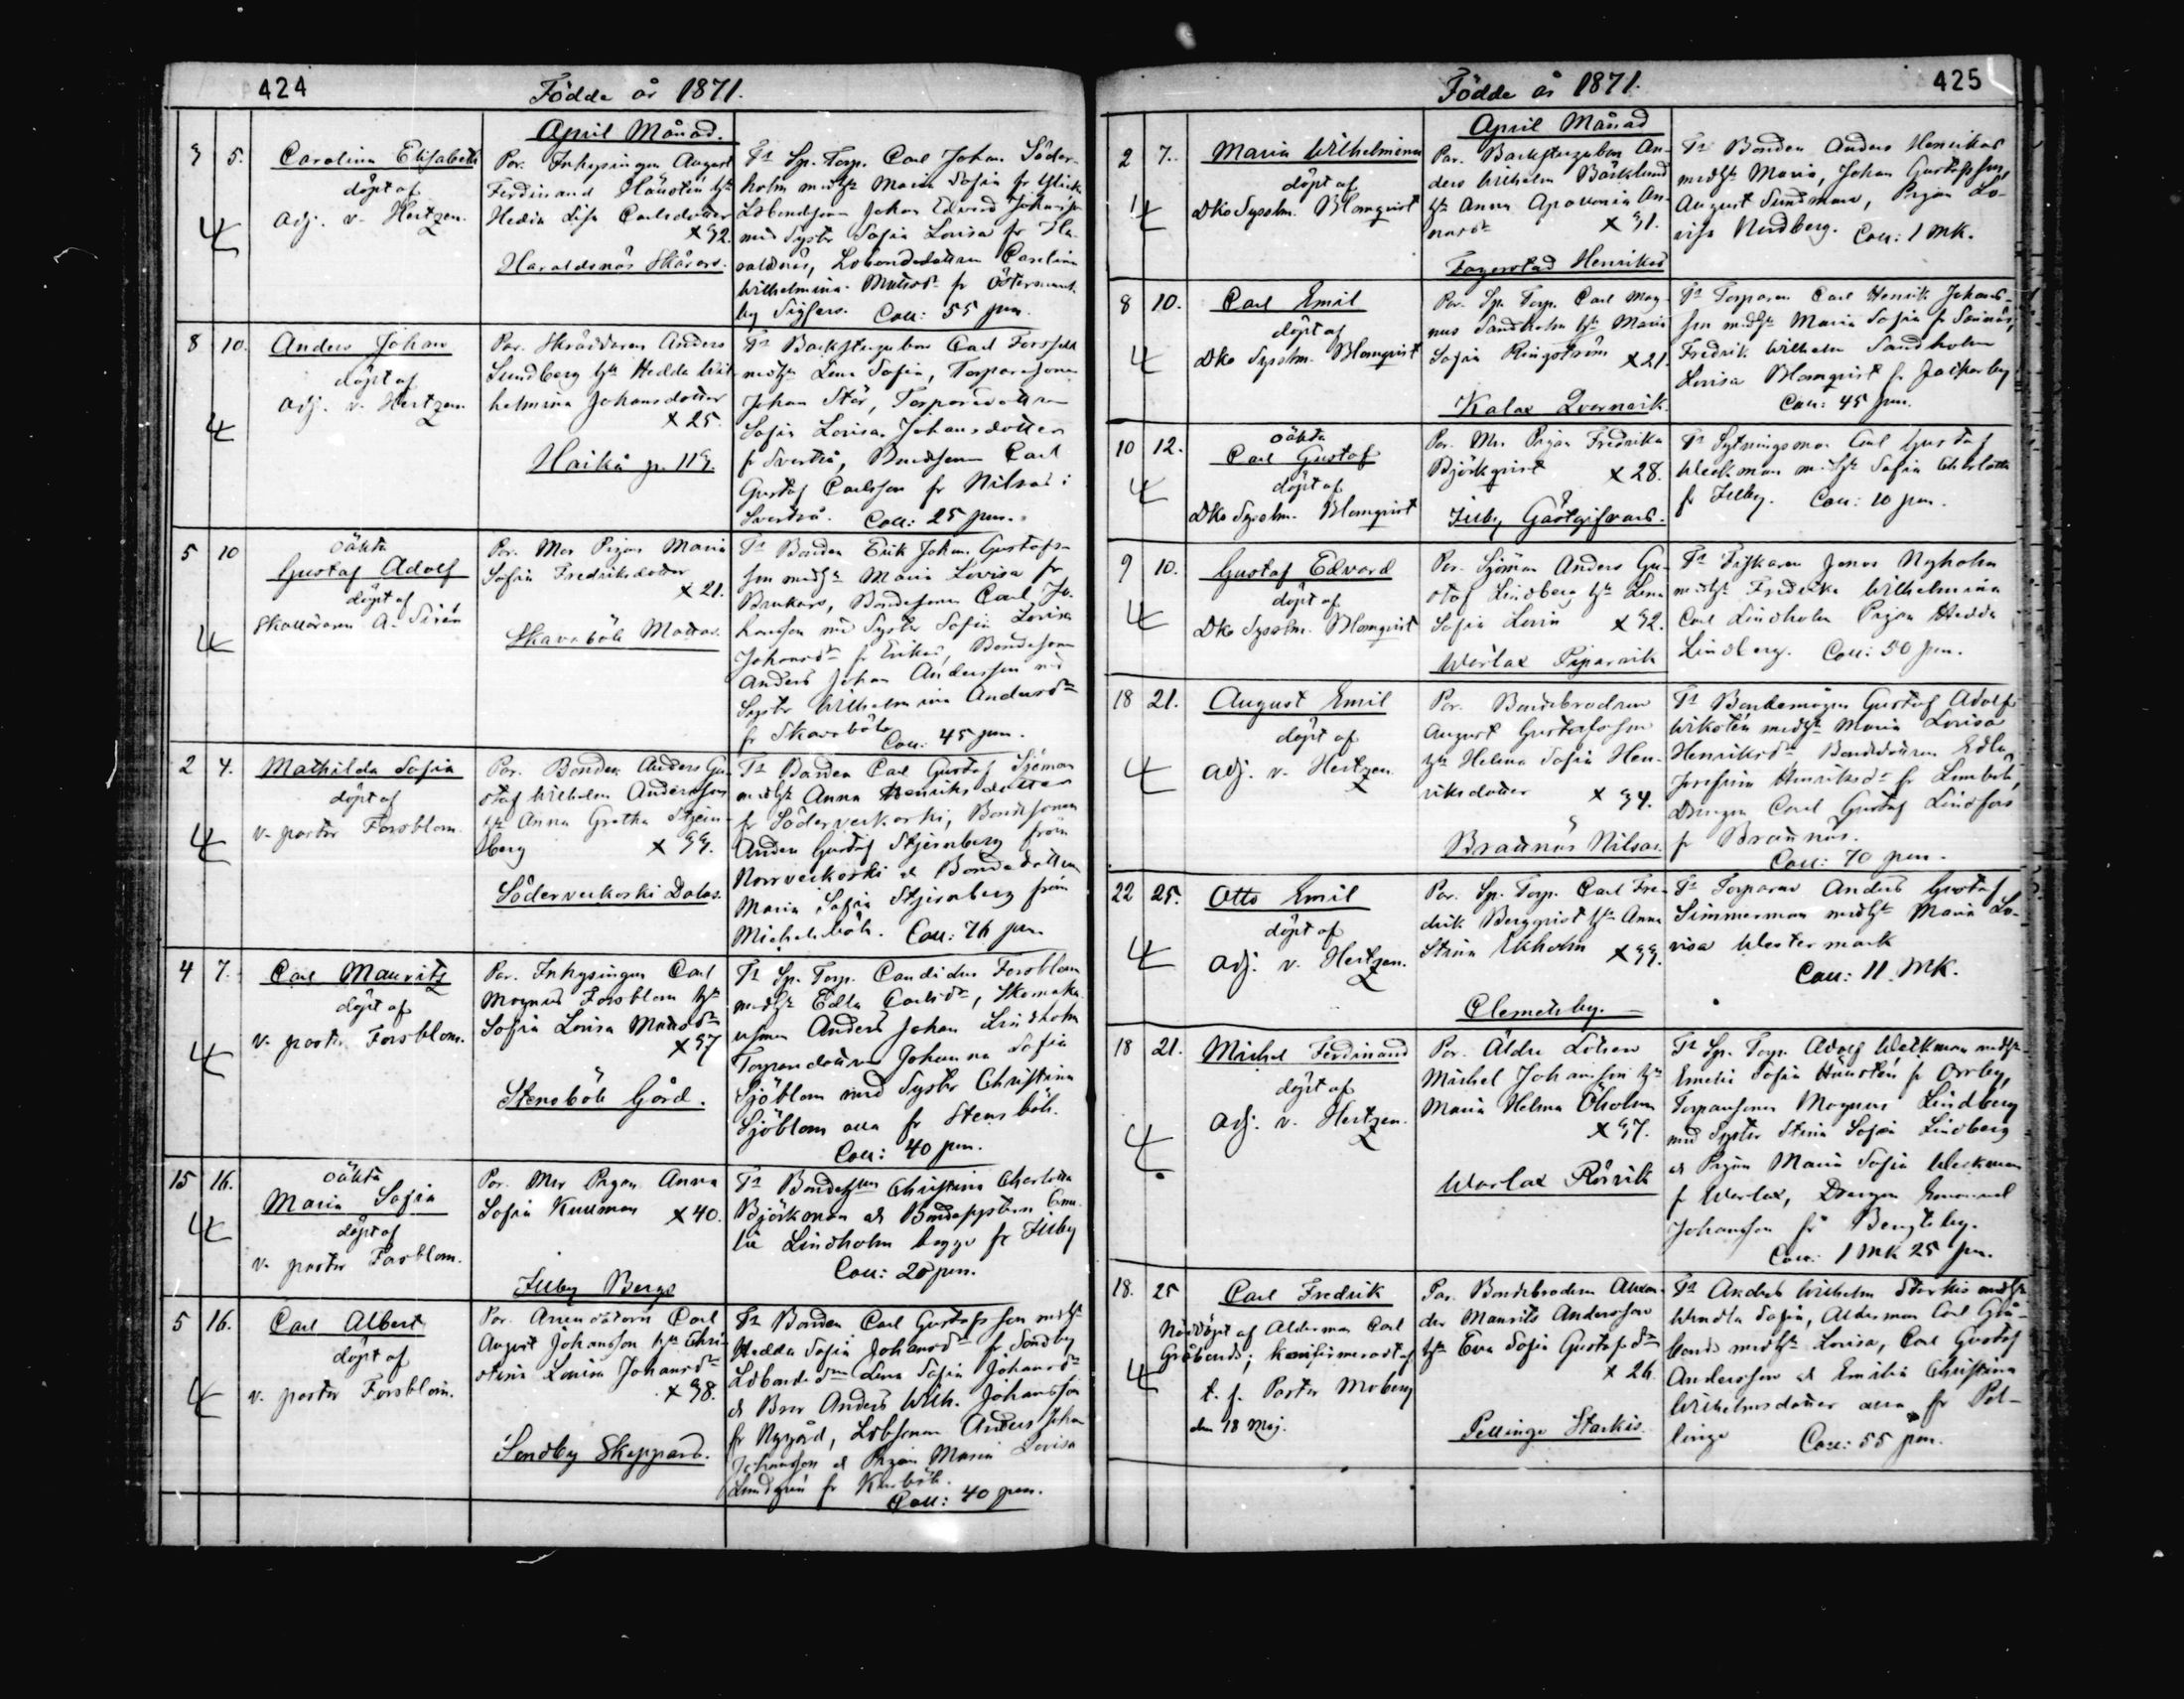 424
Födde år 1871.
April Månad.
3 5. Carolina Elisabeth
döpt af
Adj. v. Hertzen.
Par. Inhysingen August
Ferdinand Häusten h:u
Hedda Lisa Carlsdotter
x 32.
Haraldsnäs
Fr Sp. Torp. Carl Johan Söder-
holm med h:u Maria Sofia fr
Johan Edvard Johansson
med Syster Sofia Lovisa fr Ha-
raldsnäs, Carolina
Wilhelmina Matsd:r fr
by Sigfers. Coll: 55 pen.
8 10. Anders Johan
döpt af
Adj. v. Hertzen
Par. Skräddaren Anders
Sundberg h:u Hedda Wil-
helmina Johansdotter
x 25.
Haikå p. 113.
Fr Backstugubon Carl Forssell
med h:u Lena Sofia, Torparesonen
Johan Stör, Torparedottren
Sofia Lovisa Johansdotter
fr Svartså, Bondesonen Carl
Gustaf Carlsson fr Nilsas i
Svartså. Coll: 25 pen.
5 10 oäkta
Gustaf Adolf
döpt af
Skolläraren A. Sirén
Par. Mor Pigan Maria
Sofia Fredriksdotter
x 21.
Skavaböle Mattas.
Fr Bonden Erik Johan Gustafs-
son med h:u Maria Lovisa fr
Bondesonen Carl Jo-
hansson med Syster Sofia Lovisa
Johansd:r fr Bondesonen
Anders Johan Andersson med
Syster Wilhelmina Andersd:r
fr Skavaböle
Coll: 45 pen.
2 4. Mathilda Sofia
döpt af
v. pastor Forsblom.
Par. Bonden Anders Gu-
staf Wilhelm Andersson
h:u Anna Gretha Stjern-
berg x 33.
Söderveckoski Dalas.
Fr Bonden Carl Gustaf Sjöman
med h:u Anna Henriksdotter
fr Söderveckoski, Bondesonen
Anders Gustaf Stjernberg från
Norrveckoski & Bondedottren
Maria Sofia Stjernberg från
Michelsböle. Coll: 76 pen.
4 7. Carl Mauritz
döpt af
v. pastor Forsblom.
Par. Inhysingen Carl
Magnus Forsblom h:u
Sofia Lovisa Matsd:r
x 37
Stensböle Gård.
Fr Sp. Torp. Candidus Forsblom
med h:u Edla Carlsd:r, Skomaka-
Anders Johan Lindholm
Torparedottren Johanna Sofia
Sjöblom med Syster Christina
Sjöblom alla fr Stensböle.
Coll: 40 pen.
15 16. oäkta
Maria Sofia
döpt af
v. pastor Forsblom.
Par. Mor Pigan Anna
Sofia Kullman x 40.
Illby Bergs
Fr Christina Charlotta
Björkman & Emi-
lia Lindholm begge fr Illby
Coll: 20 pen.
5 16. Carl Albert
döpt af
v. pastor Forsblom.
Par. Arrendatorn Carl
August Johansson h:u Chri-
stina Lovisa Johansd:r
x 38.
Sondby Skeppars.
Fr Bonden Carl Gustafsson med h:u
Hedda Sofia Johansd:r fr Sondby
Lena Sofia Johansd:r
& Bror Anders Wilh. Johansson
fr Nygård, Anders Johan
Johansson & Pigan Maria Lovisa
Lindgren fr
Coll: 40 pen.
425
Födde år 1871.
April Månad
2 7. Maria Wilhelmina
döpt af
Dko Sysslm. Blomqvist
Par. Backstugubon An-
ders Wilhelm Bäcklund
h:u Anna Apollonia An-
x 31.
Fagerstad Henriks
Fr Bonden Anders Henriksas
med h:u Maria, Johan Gustafsson,
August Sundman, Pigan Lo-
visa Nordberg. Coll: 1 mk.
8 10. Carl Emil
döpt af
Dko Sysslm. Blomqvist
Par. Sp. Torp. Carl Mag-
nus Sandholm h:u Maria
Sofia Ringström x 21.
Kalax Qvarnvik.
Fr Torparen Carl Henrik Johans-
son med h:u Maria Sofia fr
Fredrik Wilhelm Sandholm
Lovisa Blomqvist fr
Coll: 45 pen.
10 12. oäkta
Carl Gustaf
döpt af
Dko Sysslm. Blomqvist
Par. Mor Pigan Fredrika
Björkqvist x 28.
Illby Gästgifvars.
Fr Sytningsman Carl Gustaf
Weckman med h:u Sofia Charlotta
fr Illby. Coll: 10 pen.
9 10. Gustaf Edvard
döpt af
Dko Sysslm. Blomqvist
Par. Sjöman Anders Gu-
staf Lindberg h:u Lena
Sofia Levin x 32.
Wårlax Piparvik
Fr Fiskaren Jonas Nyholm
med h:u Fredrika Wilhelmina
Carl Lindholm Pigan Hedda
Lindberg. Coll: 50 pen.
18 21. August Emil
döpt af
Adj. v. Hertzen
Par. Bondebrodren
August Gustafsson
h:u Helena Sofia Hen-
riksdotter x 34.
Brattnäs Nilsas.
Fr Bondemågen Gustaf Adolf
Wikstén med h:u Maria Lovisa
Henriksd:r Bondedottren Edla
Josefina Henriksd:r fr
Drengen Carl Gustaf Lindfors
fr Brattnäs.
Coll: 70 pen.
22 25. Otto Emil
döpt af
Adj. v. Hertzen.
Par. Sp. Torp. Carl Fre-
drik Bergqvist h:u Anna
Stina Ekholm x 33.
Clemetsby.
Fr Torparen Anders Gustaf
Simmerman med h:u Maria Lo-
visa Westermark
Coll: 11 mk.
18 21. Michel Ferdinand
döpt af
Adj. v. Hertzen.
Par. Äldre Lotsen
Michel Johansson h:u
Maria Helena Öholm
x 37.
Warlax Rörvik
Fr Sp. Torp. Adolf Weckman med h:u
Emelie Sofia Häusten fr Orrby,
Torparesonen Magnus Lindberg
med Syster Stina Sofia Lindberg
& Pigan Maria Sofia Weckman
f Warlax, Drengen Emanuel
Johansson fr Bengtsby.
Coll: 1 mk 25 pen.
18. 25 Carl Fredrik
Nöddöpt af Alderman Carl
Gråbends; konfirmerad af
t. f. Pastor Moberg
den 18 Maj.
Par. Bondebrodern Alexan-
der Maurits Andersson
h:u Eva Sofia Gustafsd:r
x 26.
Pellinge Starkis.
Fr Anders Wilhelm Starkis med h:u
Wendla Sofia, Alderman Carl Grå-
bends med h:u Lovisa, Carl Gustaf
Andersson & Emilia Christina
Wilhelmsdotter alla fr Pel-
linge Coll: 55 pen.